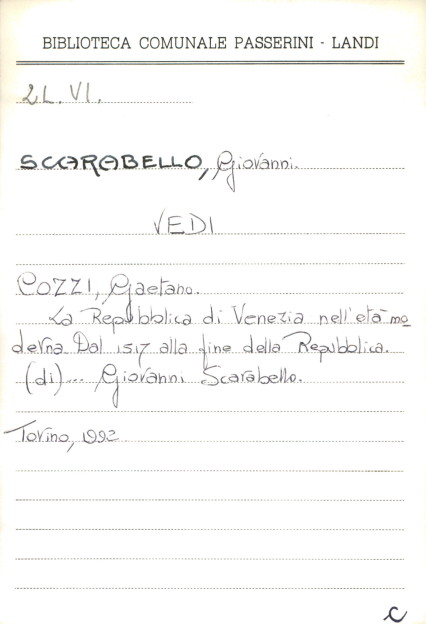 BIBLIOTECA COMUNALE PASSERINI - LANDI
2L. VI.
SCARABELLO, Giovanni.
VEDI
COZZI, Gaetano.
La Repubblica di Venezia nell'età mo
derna Dal 1517 alla fine della Repubblica.
(di)... Giovanni Scarabello.
Torino, 1992
C